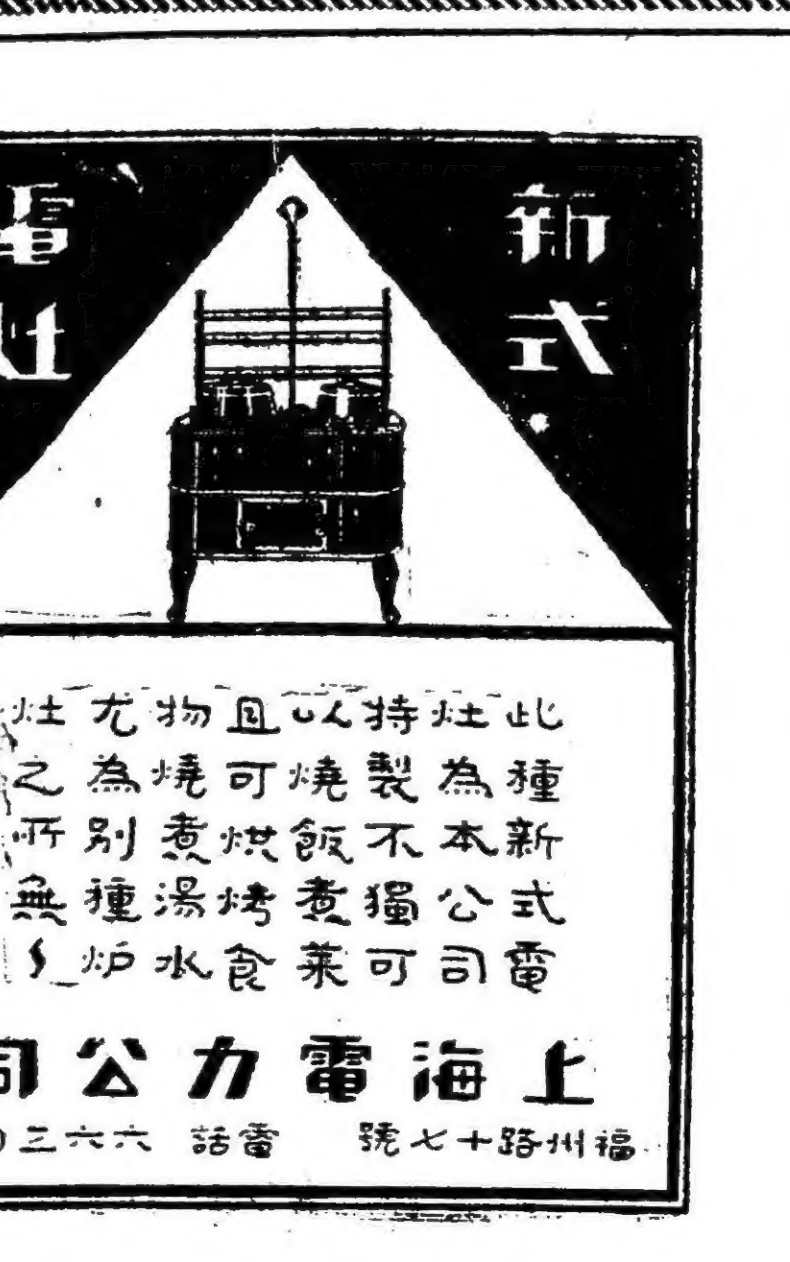 新式
電灶
此種新式電
灶為本公司
特製不獨可
以燒飯煮菜
且可烘烤食
物燒煮湯水
尤為別種炉
灶之所無
上海電力公司
福州路十七號 電話 六六三